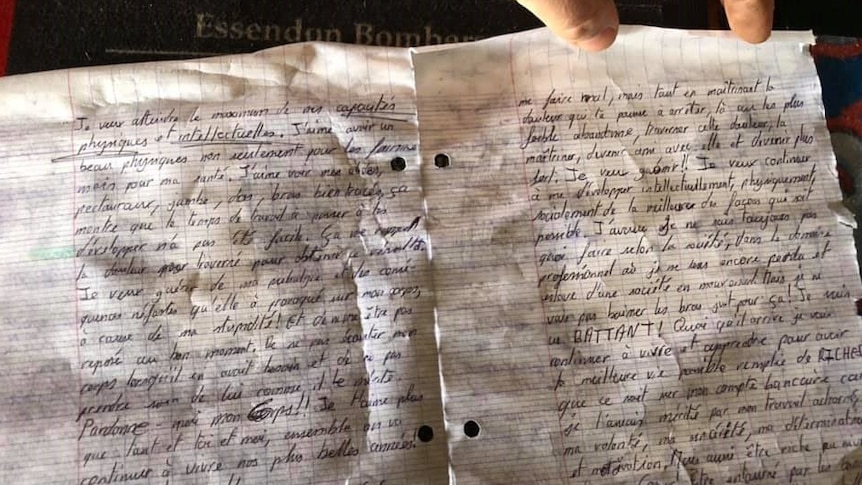 Essendon Bomber
Je veux atteindre le maximum de mes capacités
physiques et intellectuelles. J'aime avoir un
beau physiques non seulement pour les femmes
mais pour ma santé. J'aime voir mes abdos,
pectauraux, jambe, dos, bras bien tracés, ça
montre que le temps de travail à penser à les
développer n'a pas été facile. Ça me rappel
la douleur traversé pour obtenir ce résultat.
Je veux guérir de ma et des consé-
quences néfastes qu'elle à provoqué sur mon corps,
à cause de ma stupidité! Et de m'être pas
reposé au bon moment. De ne pas écouter mon
corps lorsqu'il en avait besoin et de ne pas
prendre soin de lui comme il le mérite.
Pardonne-moi mon Corps!! Je t'aime plus
que tout et toi et moi, ensemble on va
continuer à vivre nos plus belles années!
me faire mal, mais tout en maîtrisant la
douleur qui te pousse à arrêter, là où les plus
faible abandonne, traverser cette douleur, la
maîtriser, devenir ami avec elle et devenir plus
fort. Je veux guérir!! Je veux continuer
à me développer intellectuellement, physiquement,
socialement de la meilleure des façons que soit
possible. J'avoue je ne sais toujours pas
quoi faire selon la société, dans le domaine
professionnel où je me sens encore perdu et
esclave d'une société en mouvement. Mais je ne
vais pas baisser les bras juste pour ça! Je suis
un BATTANT! Quoi qu'il arrive je vais
continuer à vivre et apprendre pour avoir
la meilleure vie possible remplie de RICHES
que ce soit sur mon compte bancaire car
je l'aurais mérité par mon travail acharné,
ma volonté, ma sincérité, ma détermination
et motivation, Mais aussi être riche au
être entouré par les